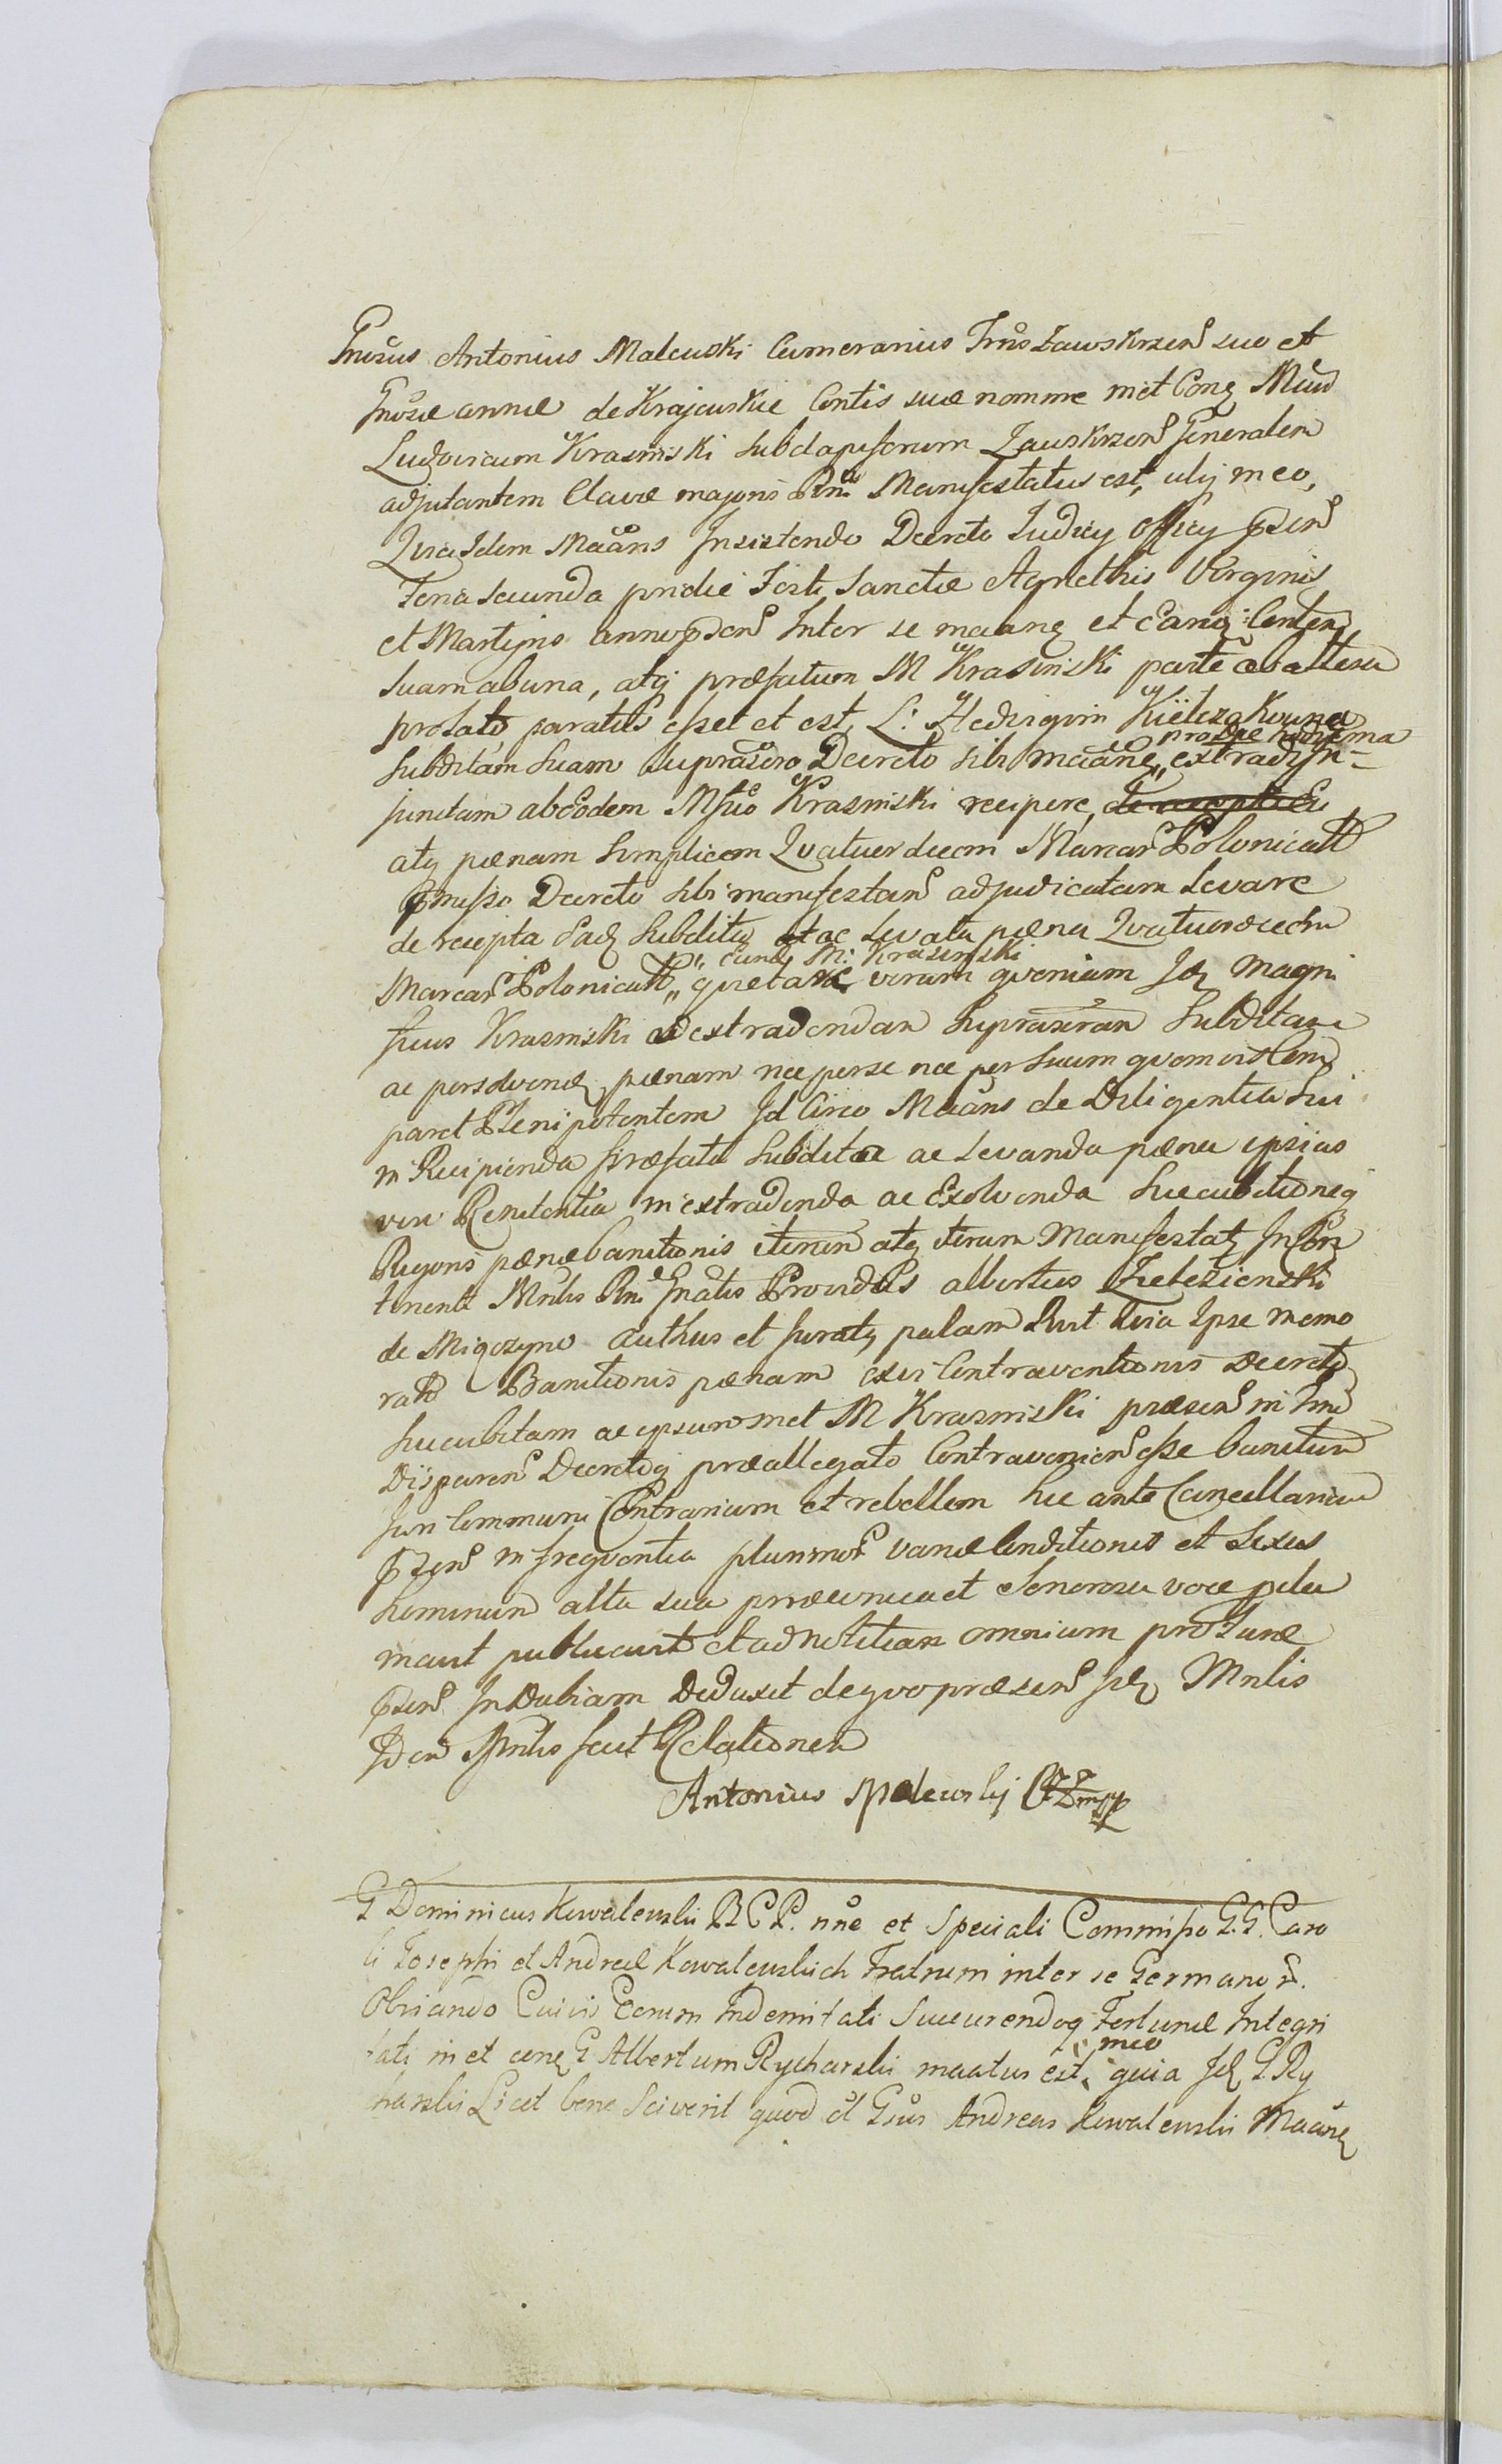 Gnosus Antonius Malewski Camerarius Trrus Zawskrzen suo et
Gnosae annae de Krajewskie Contis suae nomine met Cong Mcũm
Ludovicum Krasinski subdapiferum Zawskrzen Generalem
adjutantem Clavae majoris Rni Manifestatus est, uly meo,
Quia Idem Maãns Insistendo Decreto Judicy officy pzen
Feria secunda pridie Festi Sanctae Agnethis Virginis
et Martyris anno pzen Inter se maanẽ et Eanq Conten
Suam ab una, atq praefatum M Krasinski parte ab altera
prolato paratus esset et est, L: Hedvigim Kiełczakowna
pro die hodierna
subditam Suam suprascro Decreto sibi maãne „ extrad In-
junctam ab eodem Mfico Krasinski recipere, de recepta Ea
atq paenam simplicem Quatuordecim Marcar Polonicall
pmisso Decreto sibi manifestan adjudicatam Levare
de recepta Eadq subdita et ac Levata paena Quatuordecim
„ eundq M: Krasinski
Marcar Polonicall „ quietare verum quoniam Idq Magni
ficus Krasinski ad extradendam supraxeran Subditam
ac persolvendq paenam nec per se nec per Suum quomvis Com
paret Plenipotentem Id Circo Maãns de Diligentia Sui
in Recipienda praefata Subdita ac Levanda paena ipsius
vero Renitentia in extradenda ac Exolvenda Succubitioneq
Rigoris paenae banitionis iterum atq iterum Manifestatq In Con
tinenti Mnlis Rni Gnalis Providus albertus Zielezienski
de Migczyno authus et Juratq palam Rcvit Quia Ipse Memo
rato Banitionis paenam exvi Contraventionis Decreti
Succubitam ac ipsummet M Krasinski praesen in Tmi
Disparen Decretoq praeallegato Contravenien esse banitum
Juri Communi Contrarium et rebellem hic ante Cancellariam
pzen in frequentia plurimor variae Conditionis et Sexus
hominum alta sua praeconica et Sonorosa voce procla
mavit publicavit et ad notitiam omnium pro Lune
pzen In Dubiam Deduxit de quo praesen Idq Mnlis
Idem Mnlis fecit Relationem
Antonius Malewskj CZ mpp
G Dominicus Kowalewski B C P. nne et Speciali Commisso G. G. Caro
li Josephi et Andreae Kowalewskich Fratrum inter se Germanor.
Obviando Cuivis Eorum Indemnitati Succurendoq Fortunae Integri
meo
tati m et cong G Albertum Rycharski maatus est, „ quia Idq G Ry
charski Licet bene Sciverit quod et Gsus Andreas Kowalewski Maãnsq